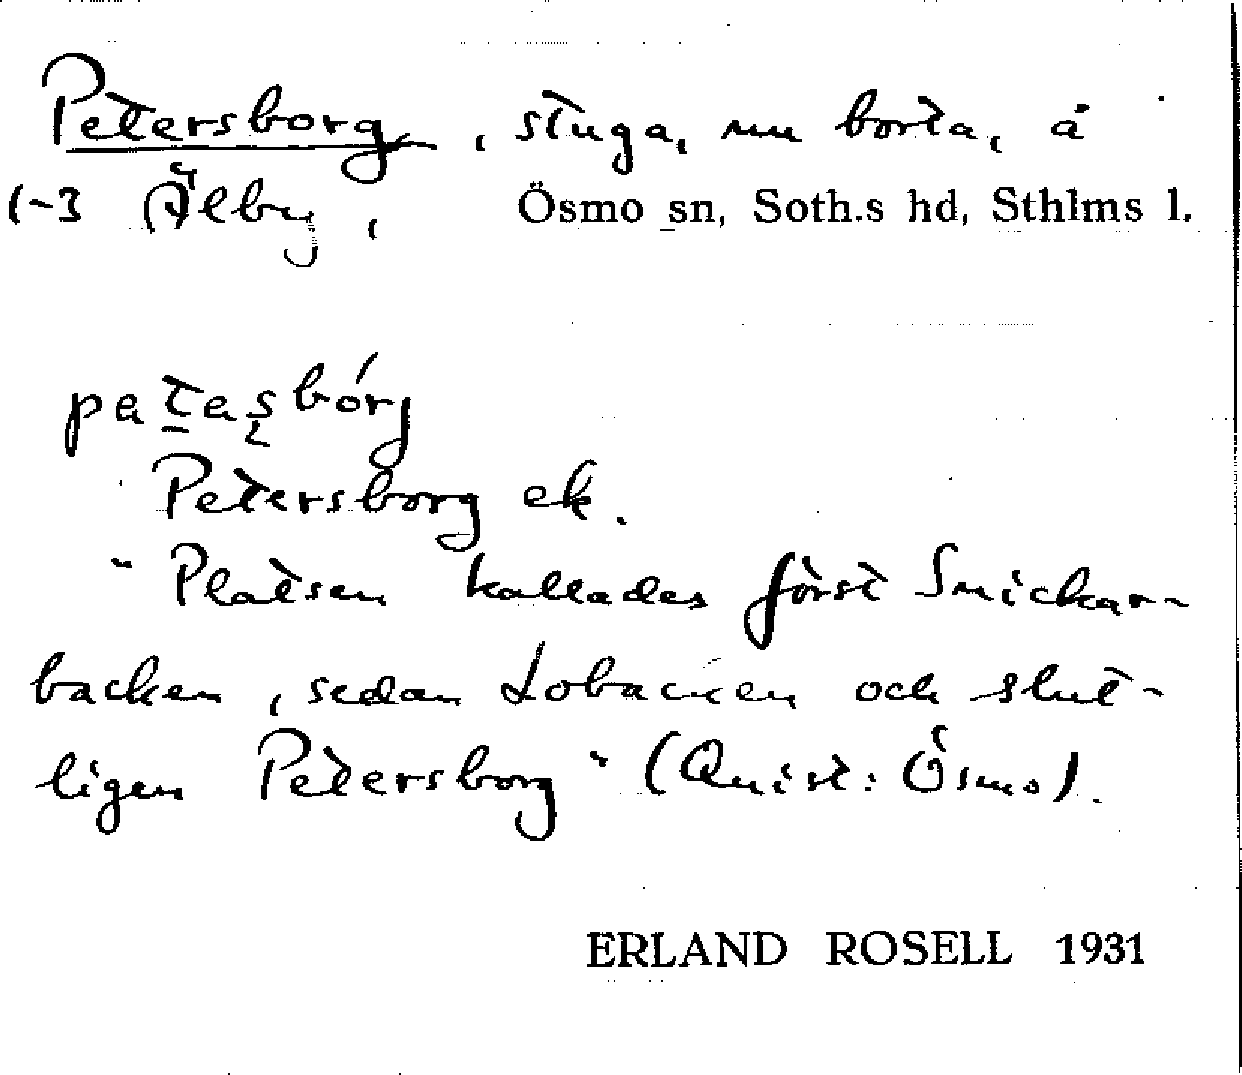 Petersborg, stuga, nu borta, å
1-3 Älby, Ösmo sn, Soth.s hd, Sthlms l.
petasbórj
Petersborg ek.
"Platsen kallades först Snickar-
backen, sedan Lobacken och slut-
ligen Petersborg" (Quist: Ösmo).
ERLAND ROSELL 1931